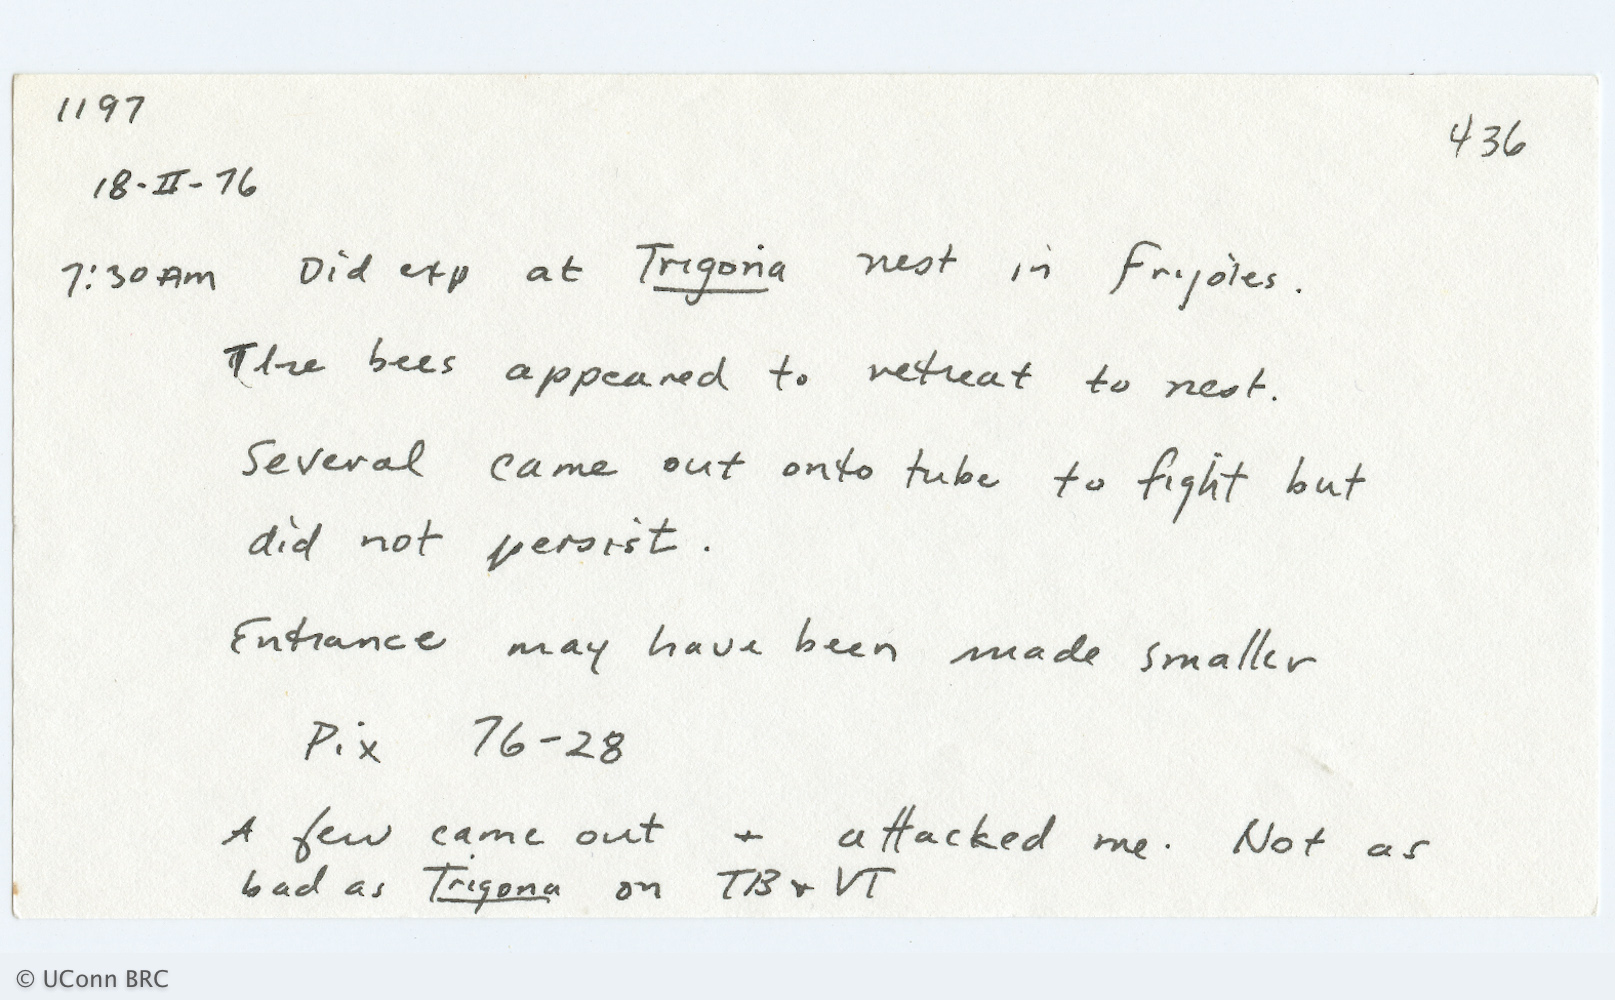 1197
436
18-II-76
7:30 AM Did exp at Trigona nest in Frijoles.
The bees appeared to retreat to nest.
Several came out onto tube to fight but
did not persist.
Entrance may have been made smaller
Pix 76-28
A few came out + attacked me. Not as
bad as Trigona on TB + VT
© UConn BRC